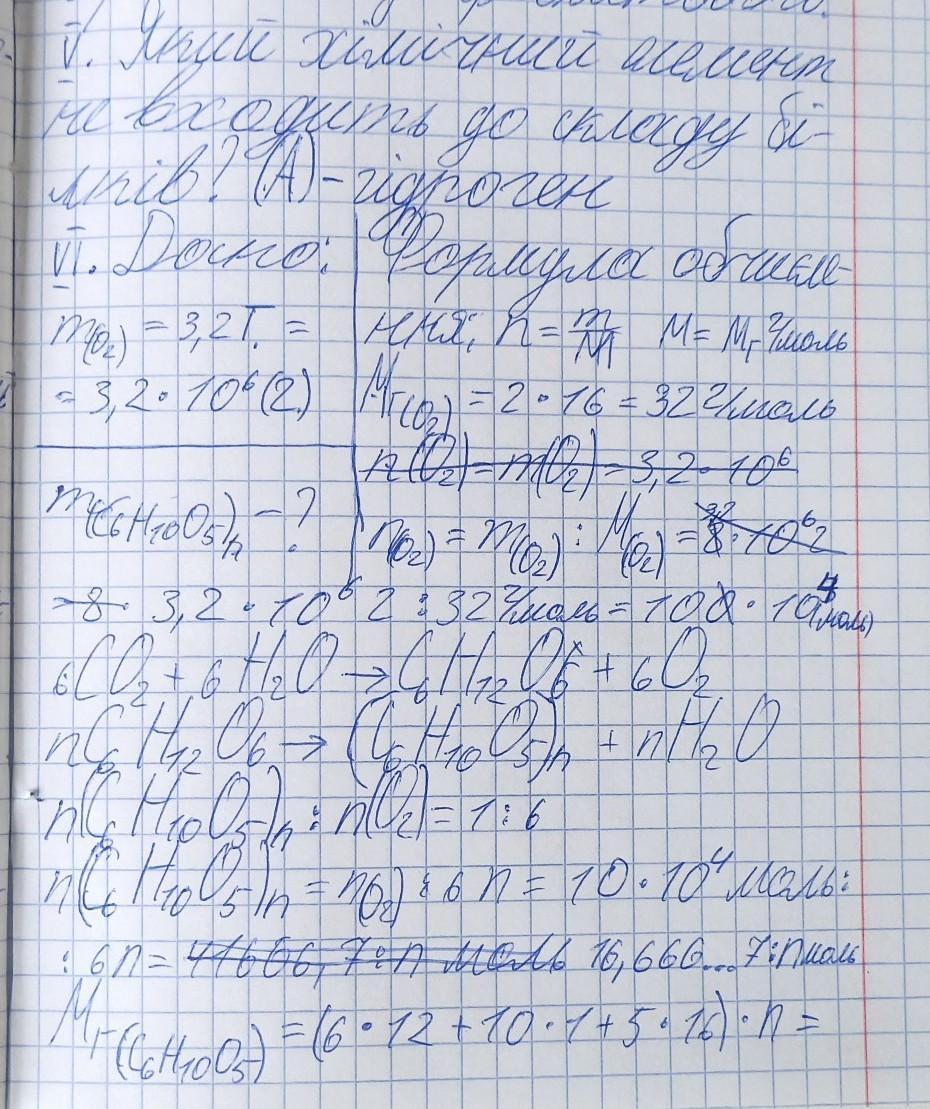 V. Який хімічний елемент
не входить до складу бі-
лків? (А) - гідроген
VI. Дано:
m(O2) = 3,2 Т. =
= 3,2 · 10⁶ (г)
m(C6H10O5)n - ?
Формула обчисле-
ння: n = m/M M = Mr г/моль
Mr(O2) = 2 · 16 = 32 г/моль
n(O2) = m(O2) = 3,2 · 10⁶
n(O2) = m(O2) : M(O2) = 8 · 10⁶ г
= 8 · 3,2 · 10⁶ г : 32 г/моль = 10 · 10⁴ (моль)
6CO2 + 6H2O → C6H12O6 + 6O2
nC6H12O6 → (C6H10O5)n + nH2O
n(C6H10O5)n : n(O2) = 1 : 6
n(C6H10O5)n = n(O2) : 6n = 10 · 10⁴ моль :
: 6n = 41666,7 : n моль 16,666...7 : n моль
Mr(C6H10O5) = (6 · 12 + 10 · 1 + 5 · 16) · n =